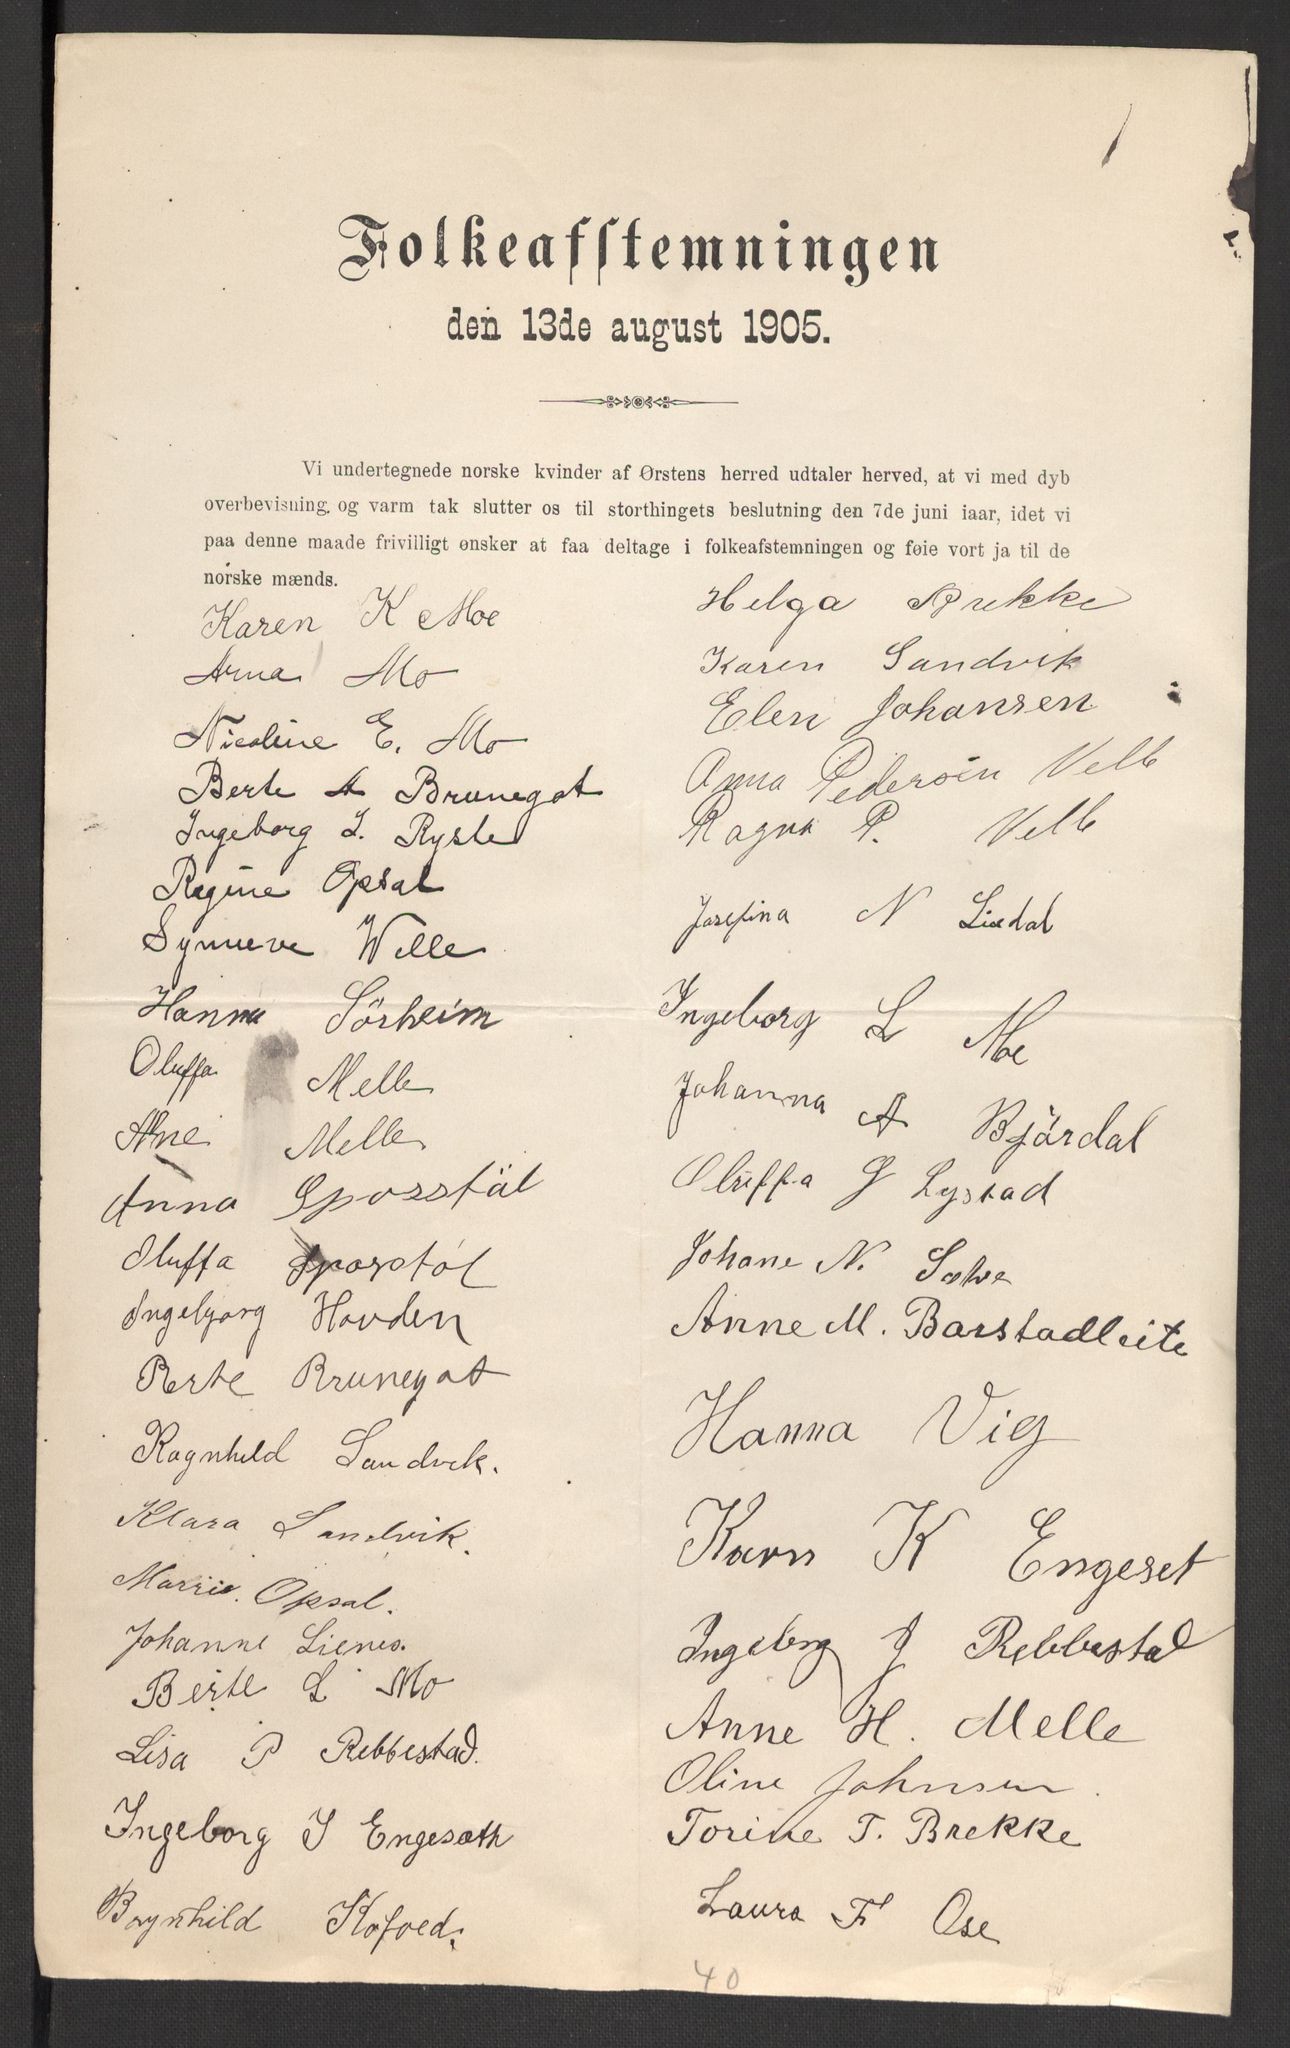 Folkeafstemningen
den 13de august 1905.
Vi undertegnede norske kvinder af Ørstens herred udtaler herved, at vi med dyb
overbevisning og varm tak slutter os til storthingets beslutning den 7de juni iaar, idet vi
paa denne maade frivilligt ønsker at faa deltage i folkeafstemningen og føie vort ja til de
norske mænds.
Karen K Moe
Anna Mo
Nicoline E. Mo
Berte A Brunegot
Ingeborg I. Ryste
Regine Opsal
Synneve Welle
Hanna Sörheim
Oluffa Melle
Ane Melle
Anna Sporstöl
Oluffa Sporstöl
Ingebjorg Hovden
Berte Brunegot
Ragnhild Sandvik.
Klara Sandvik.
Marrie. Opsal.
Johanne Lienes.
Berte L Mo
Lisa P Rebbestad.
Ingeborg I Engesæth
Bognhild Kofoed.
Helga Brekke
Karen Sandvik
Elen Johansen
Anna Pedersen Velle
Ragna P. Velle
Josefina N Liadal
Ingeborg L Moe
Johanna A Björdal
Oluffa G Lystad
Johane N.
Anne M. Barstadleite
Hanna Vig
Karn K Engeset
Ingeborg J Rebbestad
Anne H. Melle
Oline Johnsen.
Torine T. Brekke
Laura F Ose
40